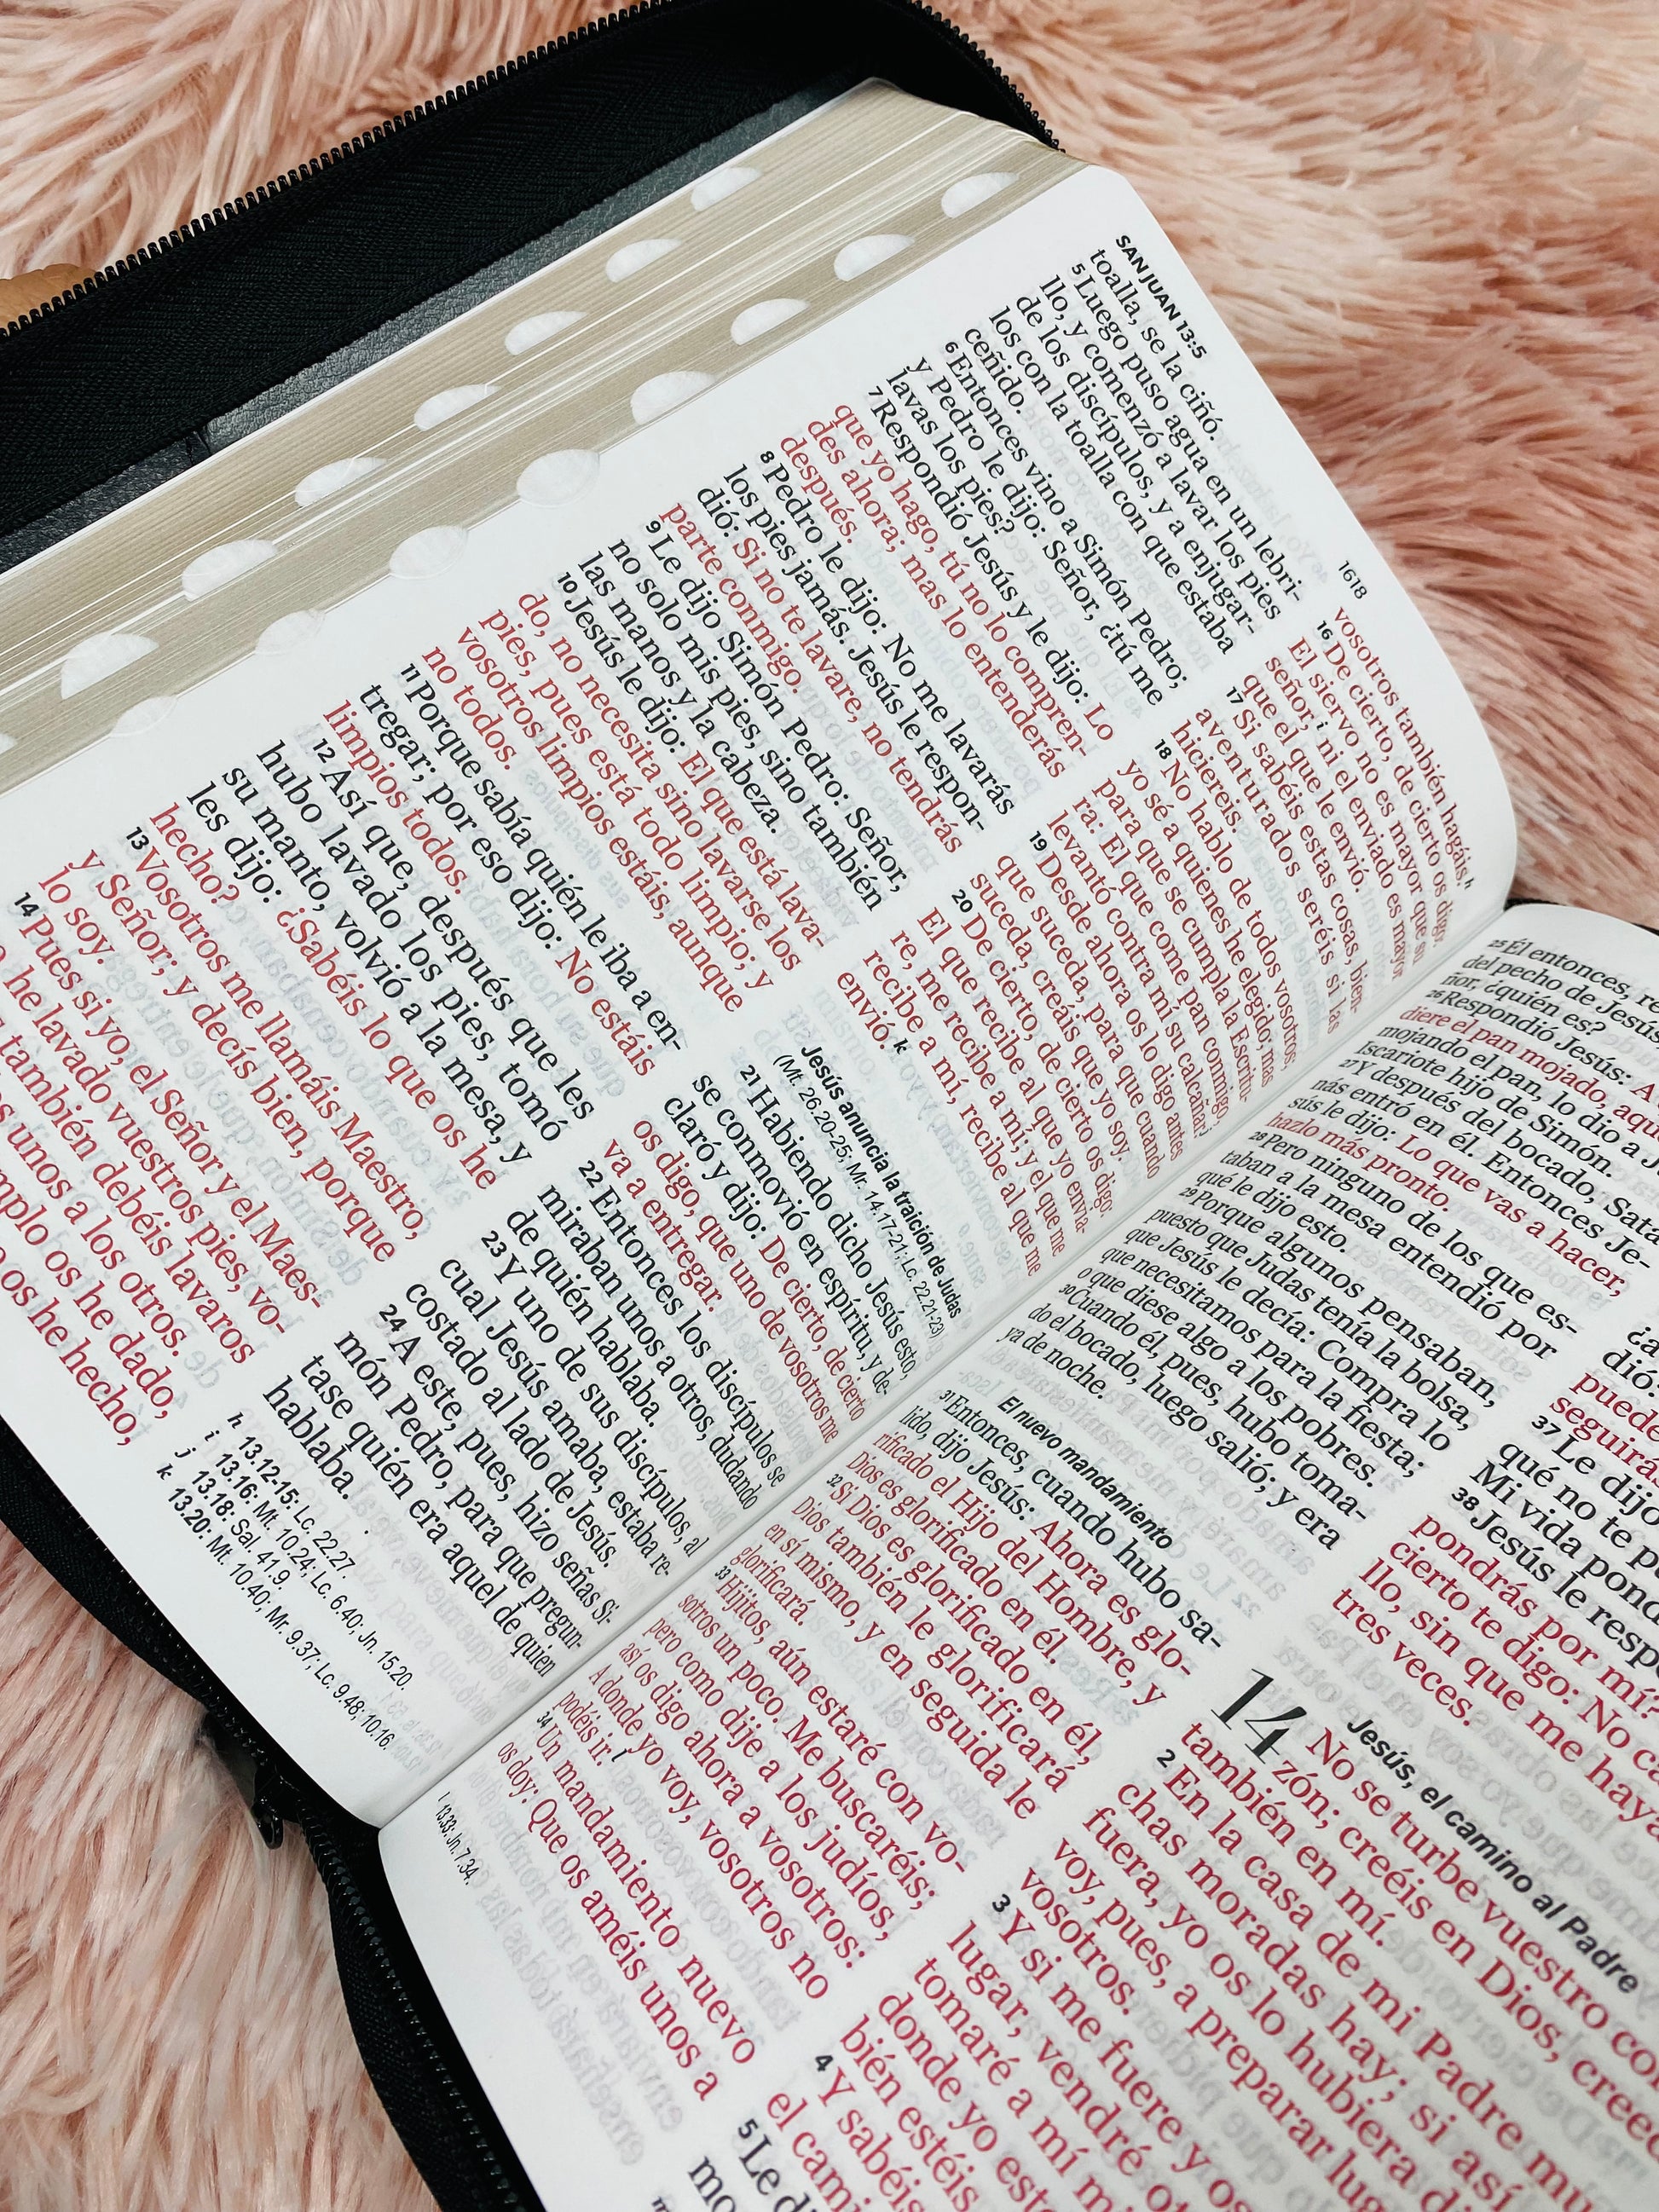 SAN JUAN 13:5
1618
toalla, se la ciñó.
5 Luego puso agua en un lebri-
llo, y comenzó a lavar los pies
de los discípulos, y a enjugar-
los con la toalla con que estaba
ceñido.
6 Entonces vino a Simón Pedro;
y Pedro le dijo: Señor, ¿tú me
lavas los pies?
7 Respondió Jesús y le dijo: Lo
que yo hago, tú no lo compren-
des ahora; mas lo entenderás
después.
8 Pedro le dijo: No me lavarás
los pies jamás. Jesús le respon-
dió: Si no te lavare, no tendrás
parte conmigo.
9 Le dijo Simón Pedro: Señor,
no solo mis pies, sino también
las manos y la cabeza.
10 Jesús le dijo: El que está lava-
do, no necesita sino lavarse los
pies, pues está todo limpio; y
vosotros limpios estáis, aunque
no todos.
11 Porque sabía quién le iba a en-
tregar; por eso dijo: No estáis
limpios todos.
12 Así que, después que les
hubo lavado los pies, tomó
su manto, volvió a la mesa, y
les dijo: ¿Sabéis lo que os he
hecho?
13 Vosotros me llamáis Maestro,
y Señor; y decís bien, porque
lo soy.
14 Pues si yo, el Señor y el Maes-
he lavado vuestros pies, vo-
también debéis lavaros
unos a los otros.
os he dado,
os he hecho,
vosotros también hagáis. h
16 De cierto, de cierto os digo:
El siervo no es mayor que su
señor, i ni el enviado es mayor
que el que le envió.
17 Si sabéis estas cosas, bien-
aventurados seréis si las
hiciereis.
18 No hablo de todos vosotros;
yo sé a quienes he elegido; mas
para que se cumpla la Escritu-
ra: El que come pan conmigo,
levantó contra mí su calcañar.
19 Desde ahora os lo digo antes
que suceda, para que cuando
suceda, creáis que yo soy.
20 De cierto, de cierto os digo:
El que recibe al que yo envia-
re, me recibe a mí; y el que me
recibe a mí, recibe al que me
envió. k
Jesús anuncia la traición de Judas
(Mt. 26.20-25; Mr. 14.17-21; Lc. 22.21-23)
21 Habiendo dicho Jesús esto,
se conmovió en espíritu, y de-
claró y dijo: De cierto, de cierto
os digo, que uno de vosotros me
va a entregar.
22 Entonces los discípulos se
miraban unos a otros, dudando
de quién hablaba.
23 Y uno de sus discípulos, al
cual Jesús amaba, estaba re-
costado al lado de Jesús.
24 A este, pues, hizo señas Si-
món Pedro, para que pregun-
tase quién era aquel de quien
hablaba.
h 13.12-15: Lc. 22.27.
i 13.16: Mt. 10.24; Lc. 6.40; Jn. 15.20.
j 13.18: Sal. 41.9.
k 13.20: Mt. 10.40; Mr. 9.37; Lc. 9.48; 10.16.
25 Él entonces,
del pecho de Jesús,
ñor, ¿quién es?
26 Respondió Jesús: A
diere el pan mojado,
mojando el pan, lo dio a
Iscariote hijo de Simón.
27 Y después del bocado,
nás entró en él. Entonces Je-
sús le dijo: Lo que vas a hacer,
hazlo más pronto.
28 Pero ninguno de los que es-
taban a la mesa entendió por
qué le dijo esto.
29 Porque algunos pensaban,
puesto que Judas tenía la bolsa,
que Jesús le decía: Compra lo
que necesitamos para la fiesta;
o que diese algo a los pobres.
30 Cuando él, pues, hubo toma-
do el bocado, luego salió; y era
ya de noche.
El nuevo mandamiento
31 Entonces, cuando hubo sa-
lido, dijo Jesús: Ahora es glo-
rificado el Hijo del Hombre, y
Dios es glorificado en él.
32 Si Dios es glorificado en él,
Dios también le glorificará
en sí mismo, y en seguida le
glorificará.
33 Hijitos, aún estaré con vo-
sotros un poco. Me buscaréis;
pero como dije a los judíos,
así os digo ahora a vosotros:
A donde yo voy, vosotros no
podéis ir. l
34 Un mandamiento nuevo
os doy: Que os améis unos a
l 13.33: Jn. 7.34.
dió:
seguirás
37 Le dijo
qué no te
Mi vida
38 Jesús le
pondrás por mí?
cierto te digo: No
llo, sin que me haya
tres veces.
Jesús, el camino al Padre
14 No se turbe vuestro
zón; creéis en Dios,
también en mí.
2 En la casa de mi Padre
chas moradas hay; si así
fuera, yo os lo hubiera
voy, pues, a preparar
vosotros.
3 Y si me fuere y os
lugar, vendré
tomaré a mí
donde yo
bién estéis.
4 Y sabéis
el
5 Le